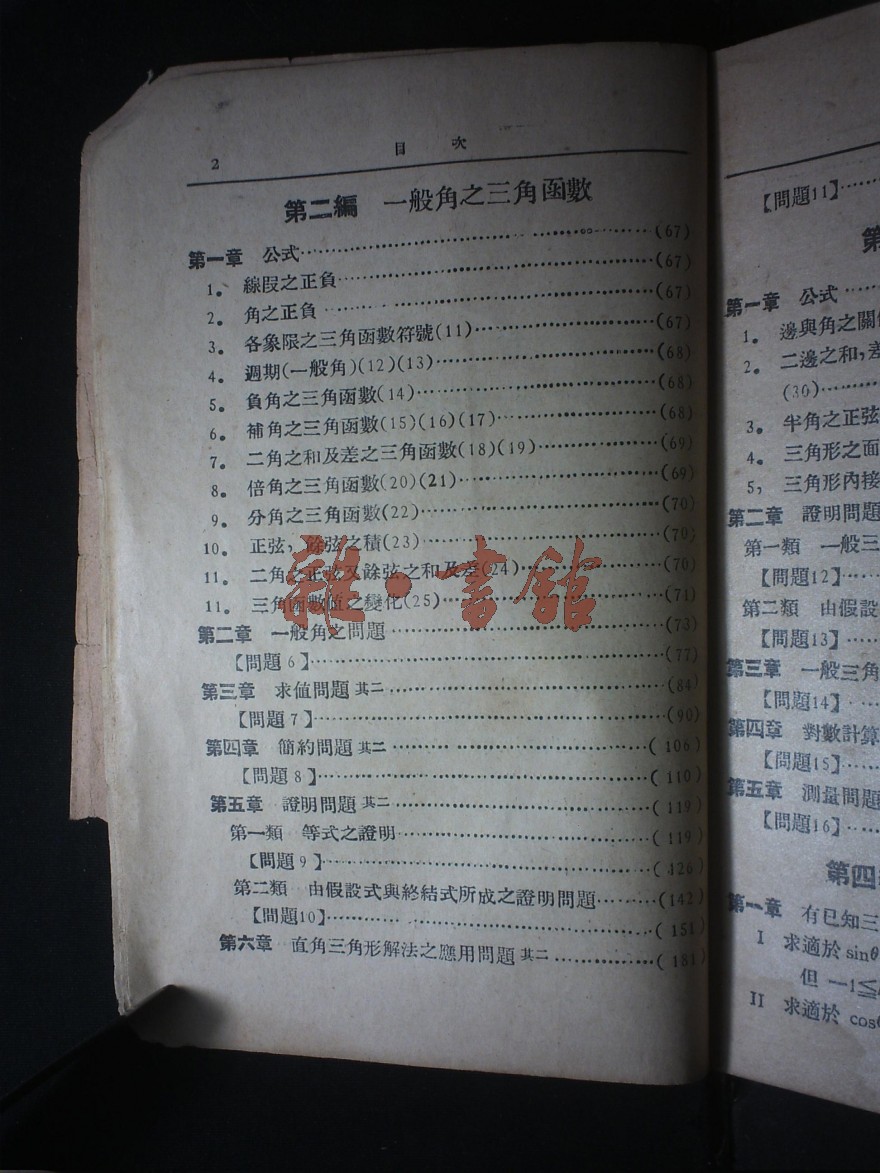 2
目 次
第二編 一般角之三角函數
第一章 公式……(67)
1。 線段之正負……(67)
2。 角之正負……(67)
3。 各象限之三角函數符號(11)……(67)
4。 週期(一般角)(12)(13)……(68)
5。 負角之三角函數(14)……(68)
6。 補角之三角函數(15)(16)(17)……(68)
7。 二角之和及差之三角函數(18)(19)……(69)
8。 倍角之三角函數(20)(21)……(69)
9。 分角之三角函數(22)……(70)
10。 正弦，餘弦之積(23)……(70)
11。 二角之正弦又餘弦之和及差(24)……(70)
11。 三角函數值之變化(25)……(71)
第二章 一般角之問題……(73)
【問題6】……(77)
第三章 求值問題其二……(84)
【問題7】……(90)
第四章 簡約問題其二……(106)
【問題8】……(110)
第五章 證明問題其二……(119)
第一類 等式之證明……(119)
【問題9】……(126)
第二類 由假設式與終結式所成之證明問題……(142)
【問題10】……(151)
第六章 直角三角形解法之應用問題其二……(181)
【問題11】……
第
第一章 公式……
1。 邊與角之關
2。 二邊之和，差
(30)……
3。 半角之正弦
4。 三角形之面
5， 三角形內接
第二章 證明問題
第一類 一般三
【問題12】……
第二類 由假設
【問題13】……
第三章 一般三角
【問題14】……
第四章 對數計算
【問題15】……
第五章 測量問題
【問題16】……
第四
第一章 有已知三
I 求適於 sinθ
但 —1≦
II 求適於 cosθ
雜·書館